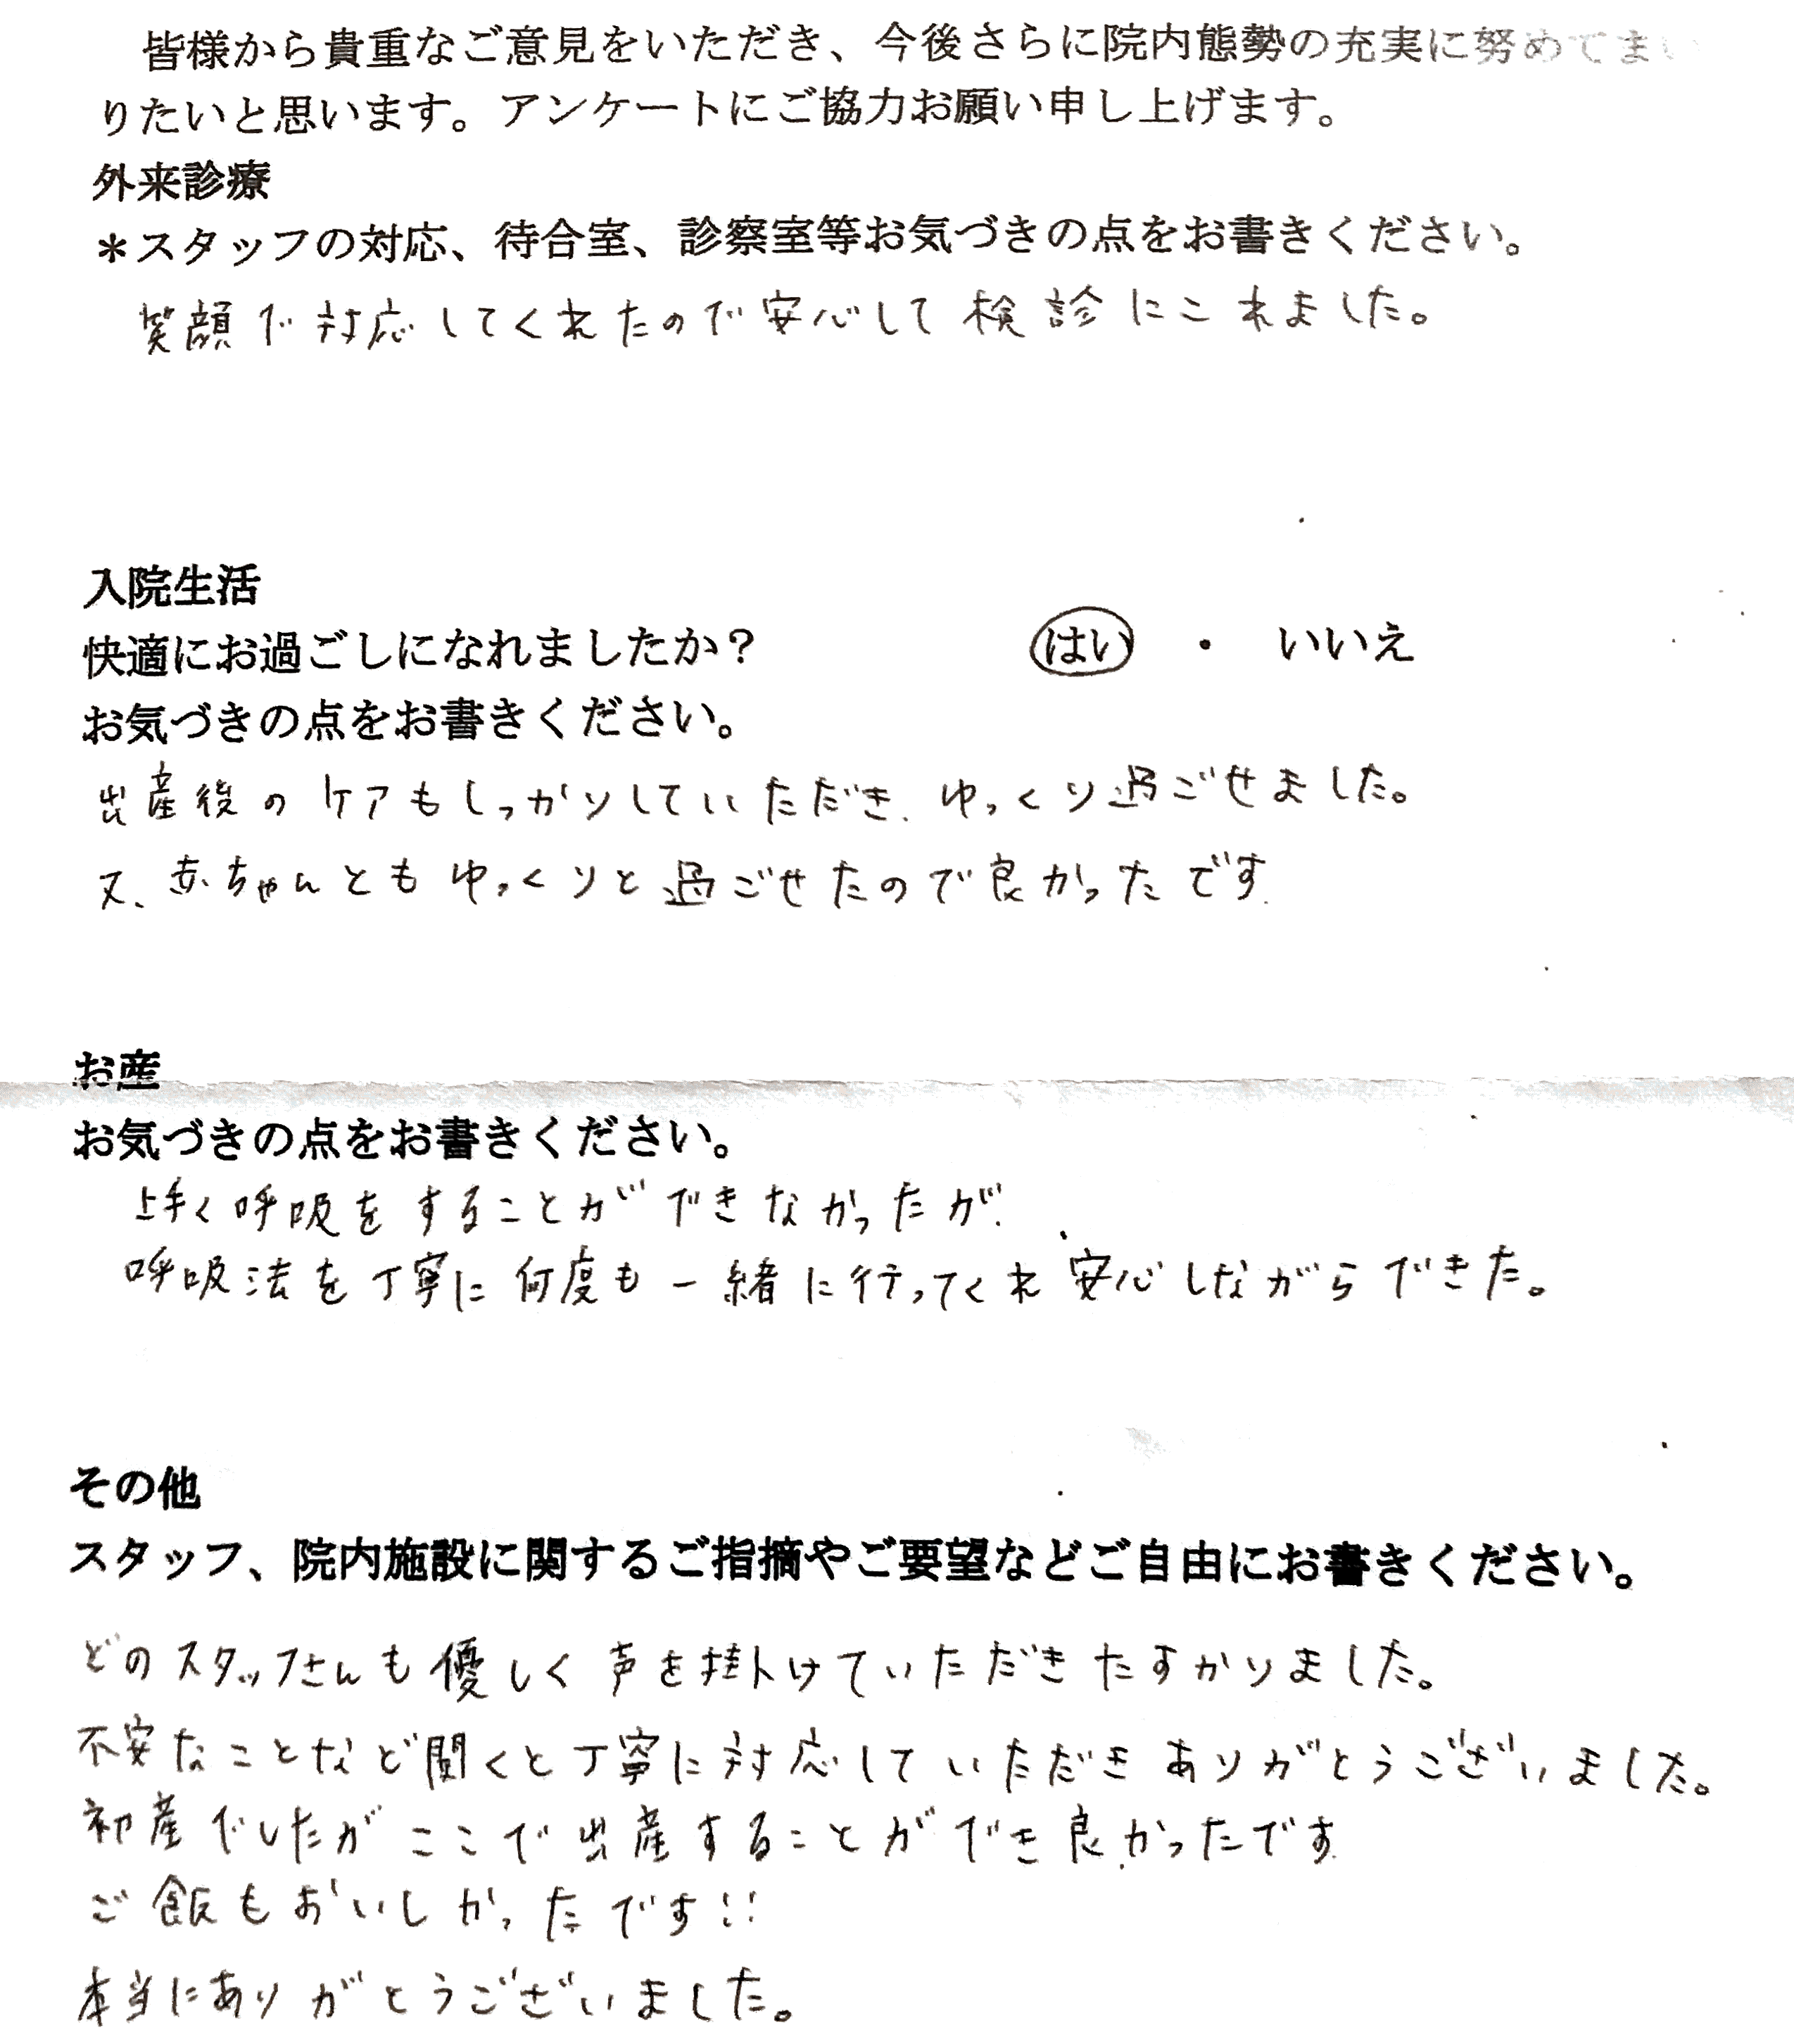 皆様から貴重なご意見をいただき、今後さらに院内態勢の充実に努めてまい
りたいと思います。アンケートにご協力お願い申し上げます。
外来診療
＊スタッフの対応、待合室、診察室等お気づきの点をお書きください。
笑顔で対応してくれたので安心して検診にこれました。
入院生活
快適にお過ごしになれましたか？ はい ・ いいえ
お気づきの点をお書きください。
出産後のケアもしっかりしていただき、ゆっくり過ごせました。
又、赤ちゃんともゆっくりと過ごせたので良かったです.
お産
お気づきの点をお書きください。
上手く呼吸をすることができなかったが、
呼吸法を丁寧に何度も一緒に行ってくれ安心しながらできた。
その他
スタッフ、院内施設に関するご指摘やご要望などご自由にお書きください。
どのスタッフさんも優しく声を掛けていただきたすかりました。
不安なことなど聞くと丁寧に対応していただきありがとうございました。
初産でしたがここで出産することができ良かったです.
ご飯もおいしかったです!!
本当にありがとうございました。